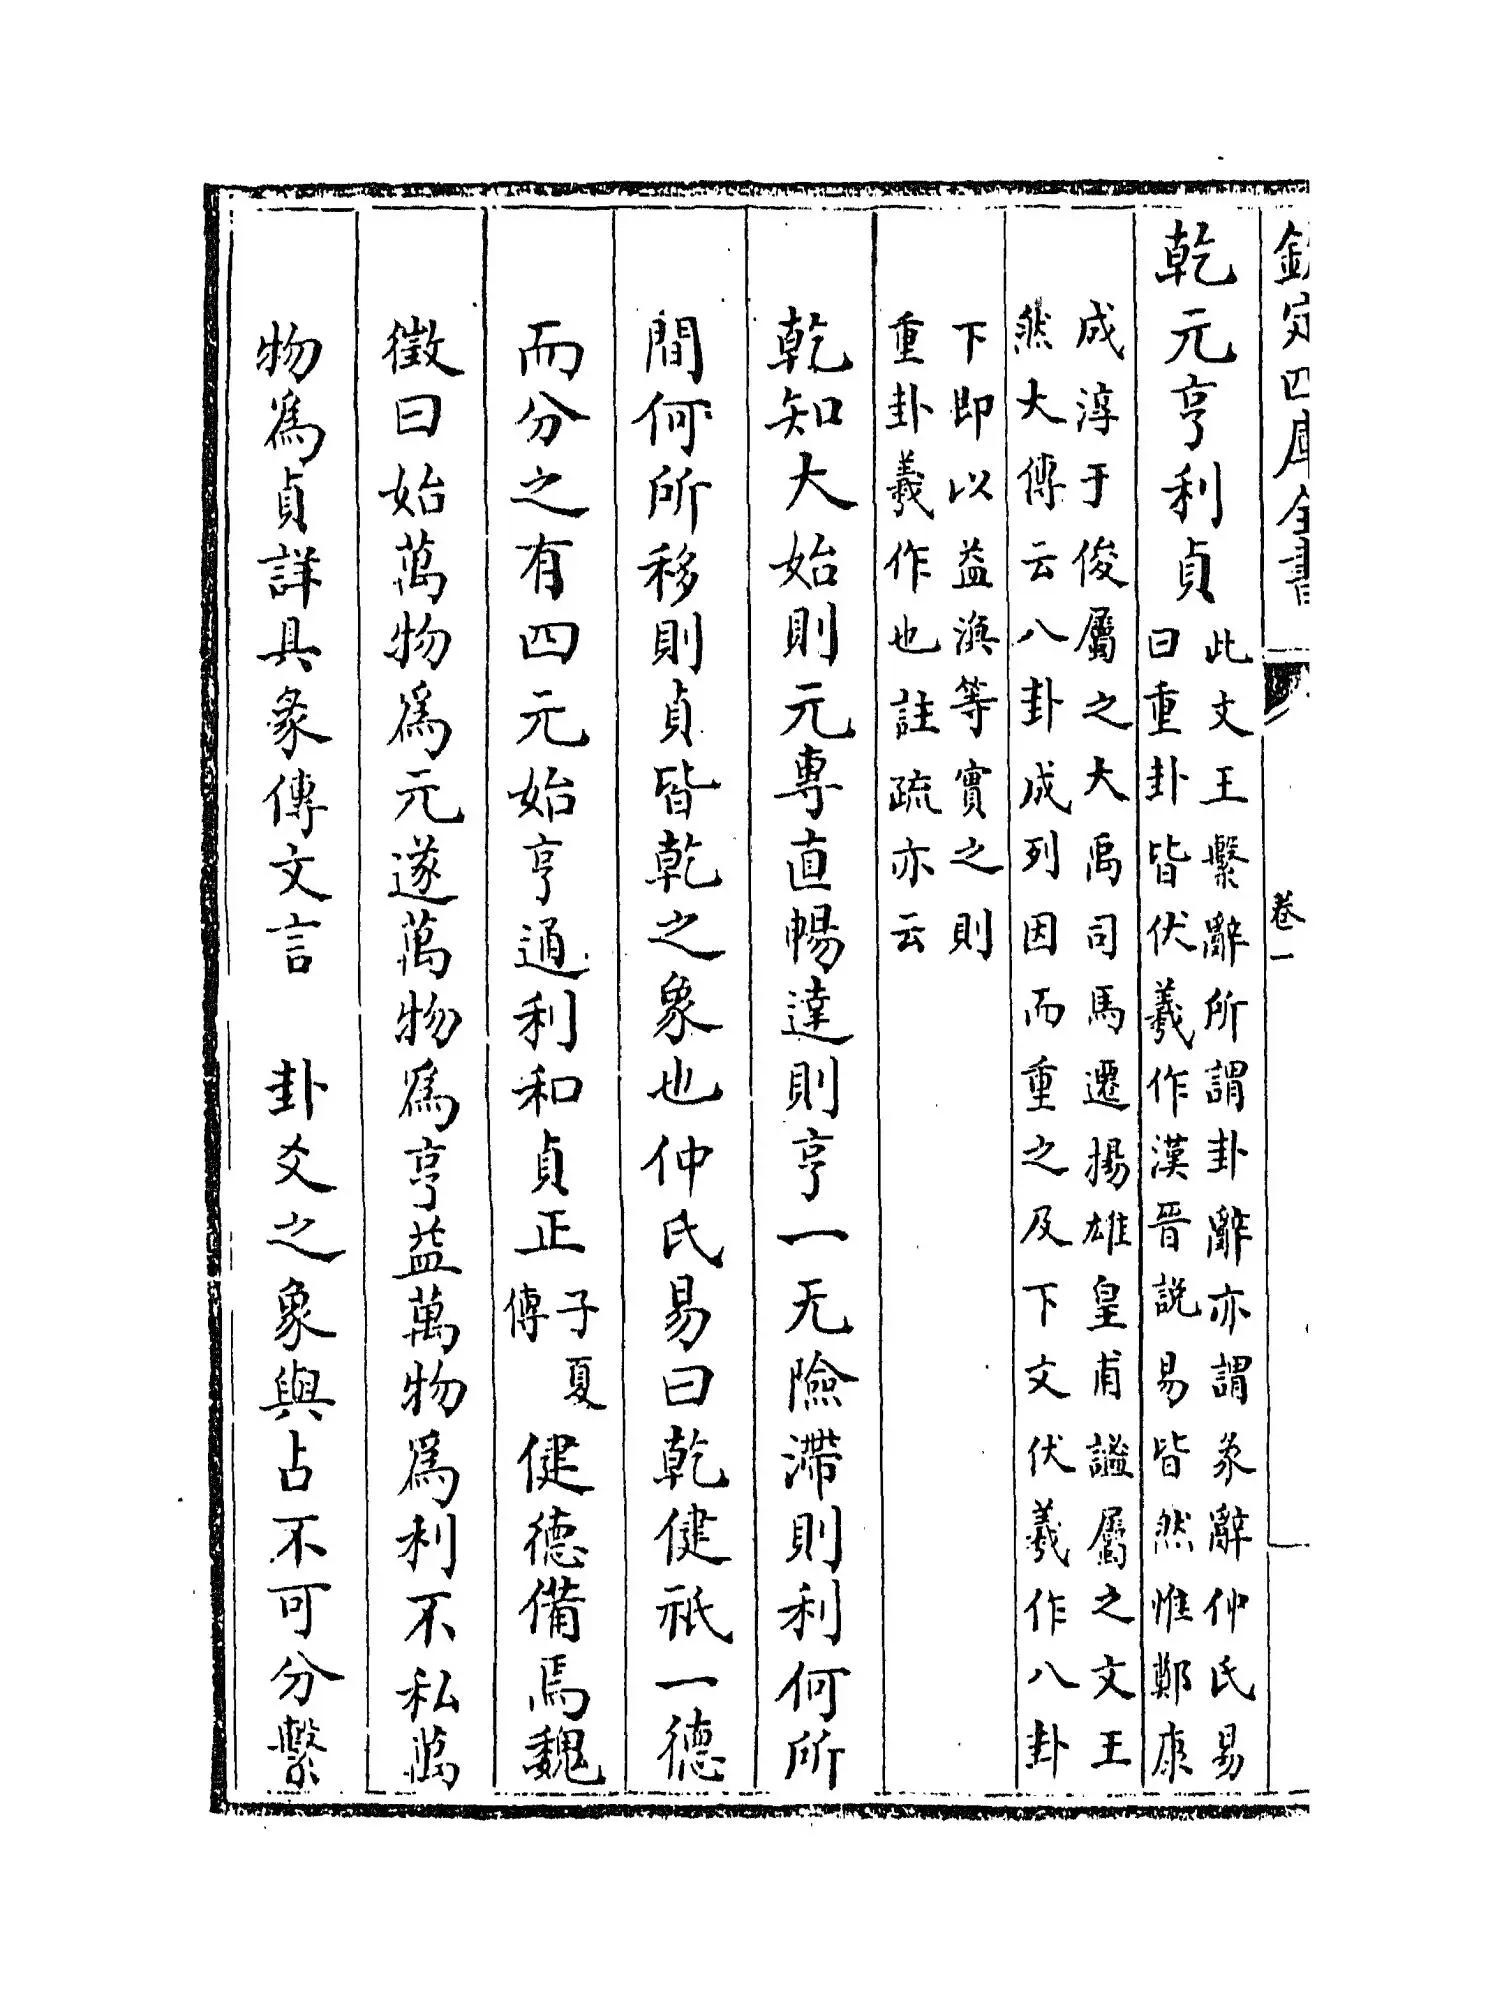 欽定四庫全書
卷一
乾元亨利貞
此文王繫辭所謂卦辭亦謂彖辭仲氏易
曰重卦皆伏羲作漢晉説易皆然惟鄭康
成淳于俊屬之大禹司馬遷揚雄皇甫謐屬之文王
然大傳云八卦成列因而重之及下文伏羲作八卦
下即以益渙等實之則
重卦羲作也註疏亦云
乾知大始則元專直暢達則亨一无險滯則利何所
間何所移則貞皆乾之象也仲氏易曰乾健祇一德
而分之有四元始亨通利和貞正子夏傳健德備焉魏
徵曰始萬物為元遂萬物為亨益萬物為利不私萬
物為貞詳具彖傳文言　卦爻之象與占不可分繫